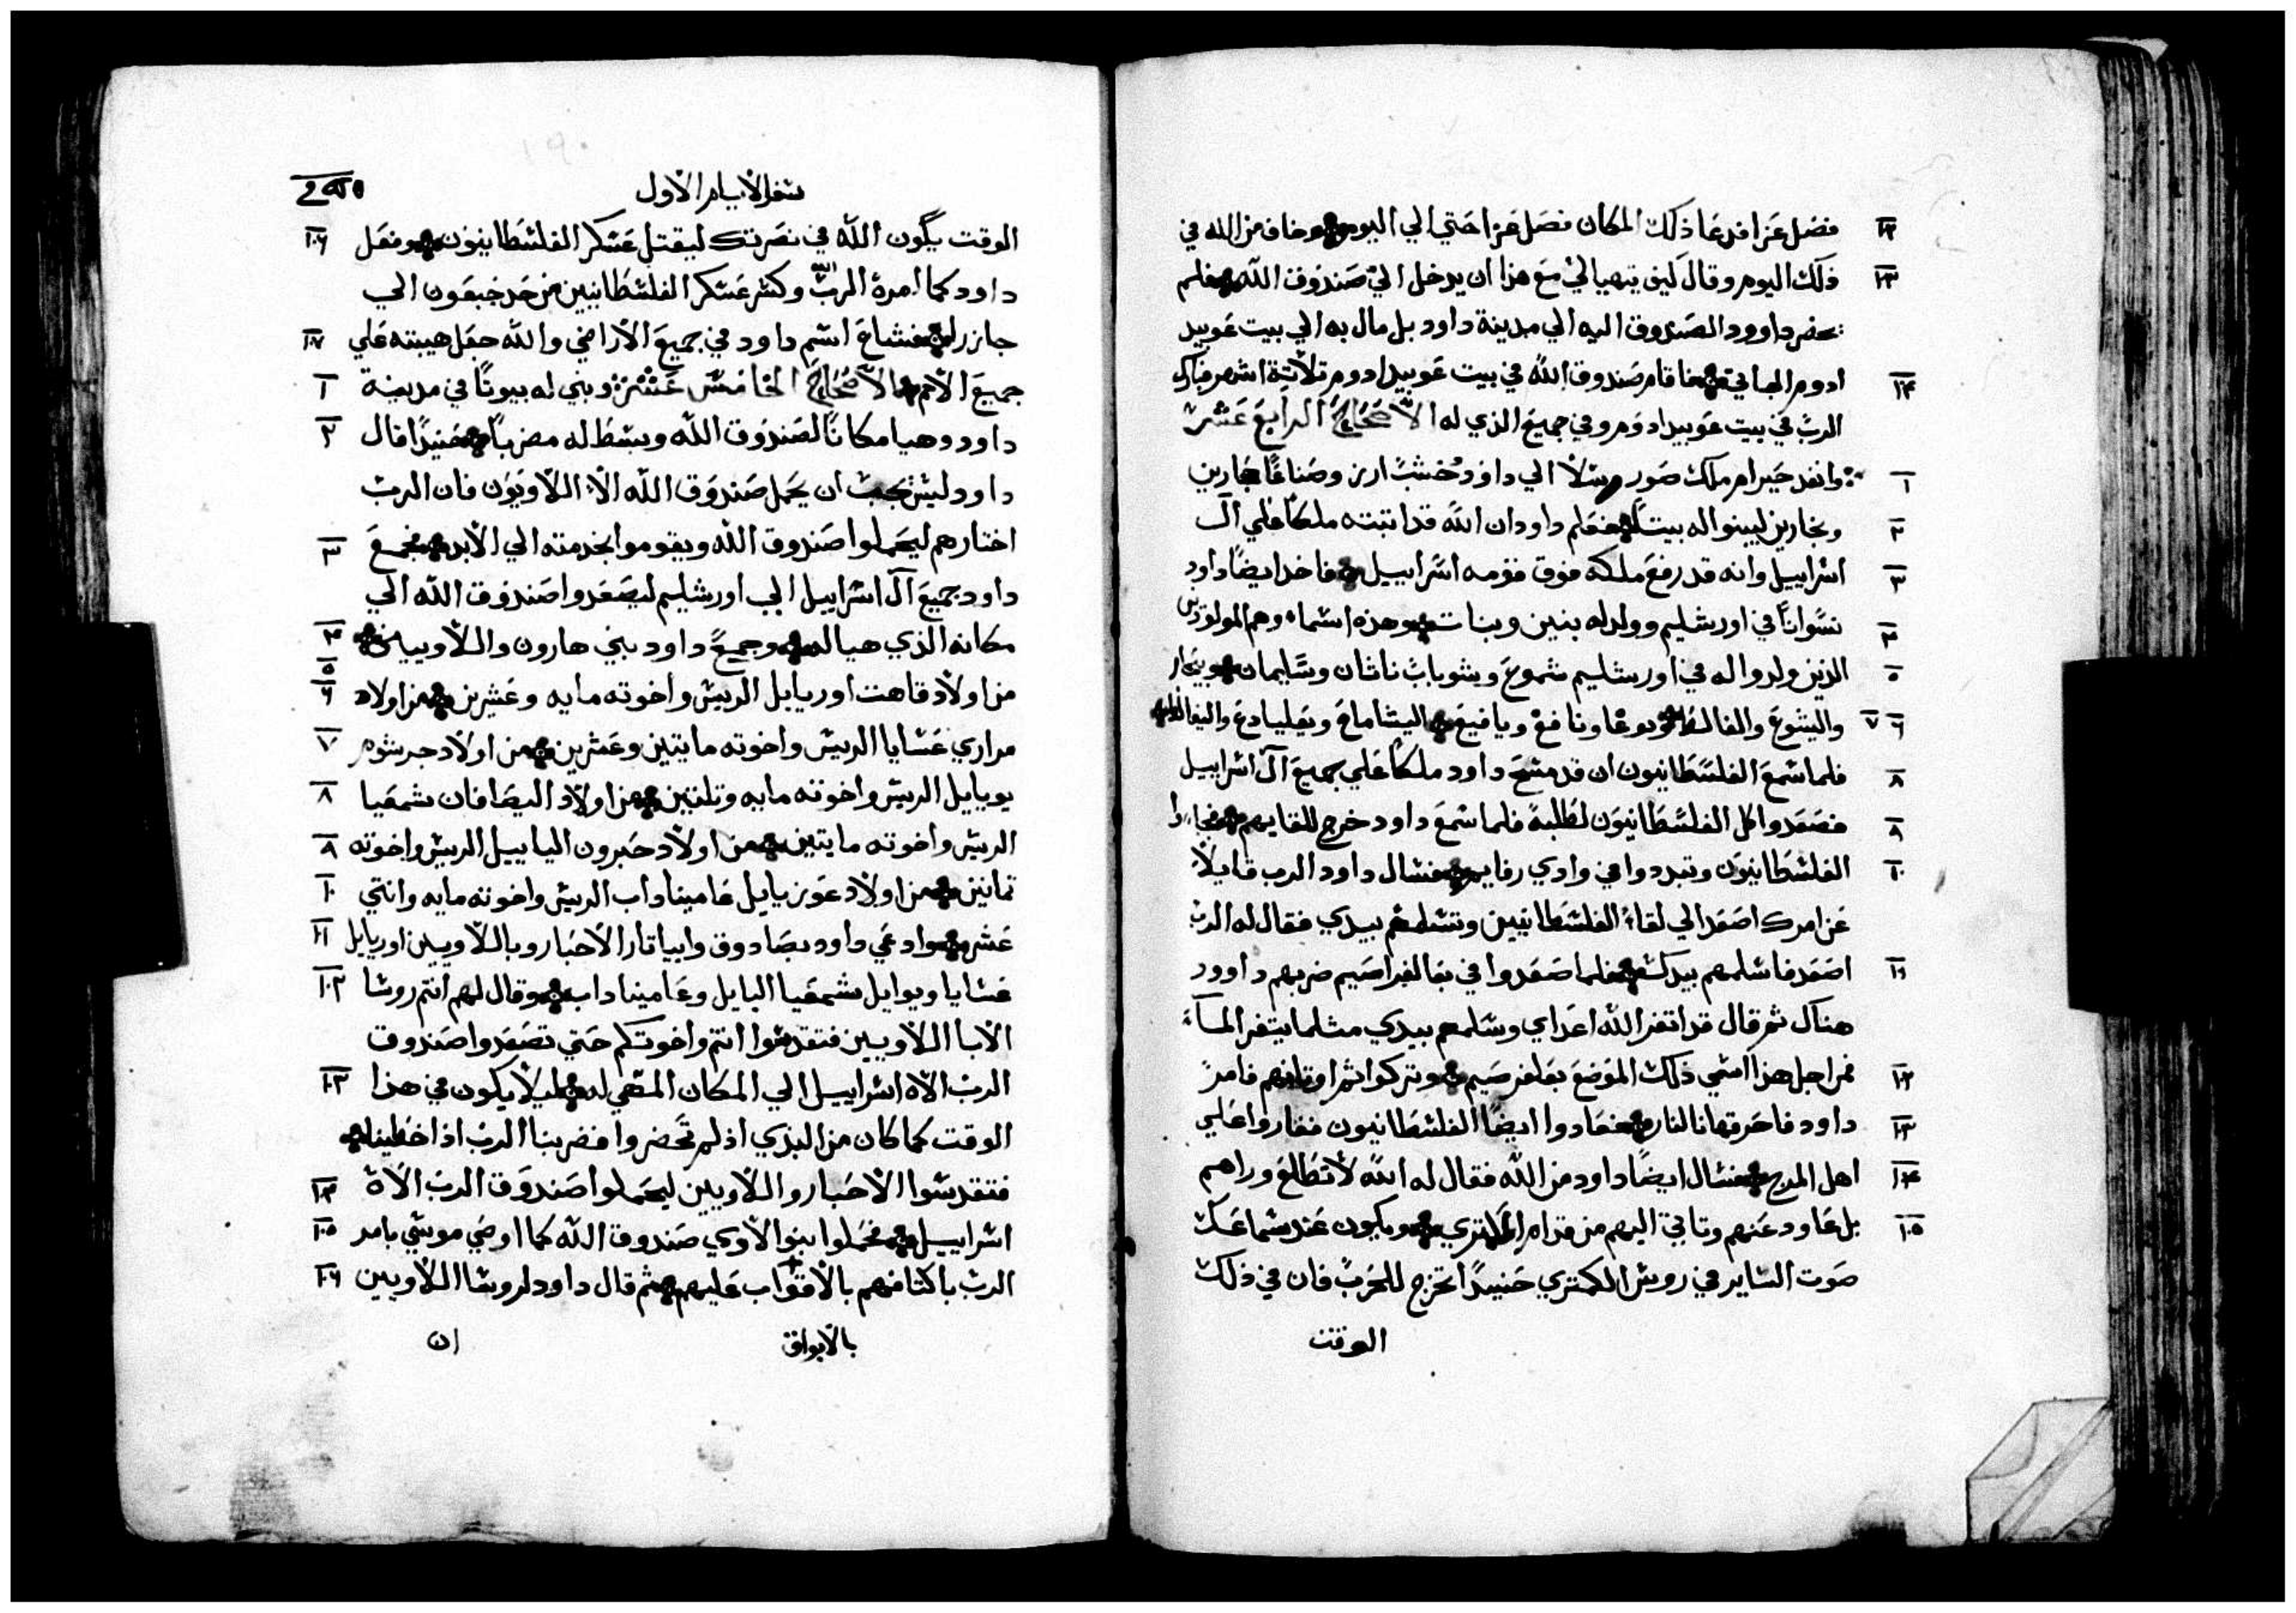 ١٢ فصل عزا فدعا ذلك المكان فصل عزا حتي الي اليوم وخاف من الله في
١٣ ذلك اليوم وقال كيف يتهيا لي مع هذا ان يدخل الي صندوق الله فلم
يحضر داوود الصندوق اليه الي مدينة داود بل مال به الي بيت عوبيد
١٤ ادوم الجاتي فاقام صندوق الله في بيت عوبيد ادوم ثلاثة اشهر فبارك
الرب في بيت عوبيد ادوم وفي جميع الذي له الاصحاح الرابع عشر
١ وانفد حيرام ملك صور رسلا الي داود خشب ارز وصناعا
٢ ونجارين ليبنوا له بيتا فعلم داود ان الله قد اثبته ملكا علي ال
٣ اسراييل وانه قد رفع ملكه فوق قومه اسراييل فاخد ايضا داود
٤ نسوانا في اورشليم وولد له بنين وبنات وهذه اسماء وهم المولودين
٥ الذين ولدوا له في اورشليم شموع وشوباب ناثان وسليمان ويبحار
٦ ٧ واليشوع والفالط ونوعا ونافغ ويافيع اليشاماع وبعليادع واليفالط
٨ فلما سمع الفلسطانيون ان قد مسح داود ملكا علي جميع ال اسراييل
٨ فصعدوا كل الفلسطانيون لطلبه فلما سمع داود خرج للقايهم فجاءوا
١٠ الفلسطانيون وتبددوا في وادي رفايم فسال داود الرب قايلا
عن امرك اصعد الي لقاء الفلسطانيين وتسلمهم بيدي فقال له الرب
١١ اصعد فاسلمهم بيدك فلما صعدوا في بعالفراصيم ضربهم داوود
هناك ثم قال قد اتغر الله اعداي وسلمهم بيدي مثلما يتغر المآء
١٢ فمن اجل هذا اسمي ذلك الموضع بعلفرصيم وتركوا ثم اوثانهم فامر
١٣ داود فاحرقها بالنار فعادوا ايضا الفلسطانيون فغاروا علي
١٤ اهل المرج فسال ايضا داود من الله فقال له الله لا تطلع وراهم
١٥ بل عاود عنهم وتاتي اليهم من قدام الكمتري ويكون عند سماعك
صوت الساير في روس الكمتري حنيدا تخرج للحرب فان في ذلك
الوقت
سفر الايام الاول
الوقت يكون الله في نصرتك ليقتل عسكر الفلسطانيون وفعل ١٠٦
داود كما امره الرب الله وكسر عسكر الفلسطانيين من حد جبعون الي
جازر فشاع اسم داود في جميع الاراضي والله جعل هيبته علي ١٠٧
جميع الامم الاصحاح الخامس عشر وبني له بيوتا في مدينة ١
داود وهيا مكانا لصندوق الله وبسط له مضربا حنيدا قال ٢
داود ليس يجب ان يحمل صندوق الله الا اللاويون فان الرب
اختارهم ليحملوا صندوق الله ويقوموا بخدمته الي الابد فجمع ٣
داود جميع ال اسراييل الي اورشليم ليصعدوا صندوق الله الي
مكانه الذي هيا له وجميع داود بني هارون واللاويين ٤
٥
من اولاد قاهت اوريايل الريس واخوته مايه وعشرين من اولاد ٦
مراري عسايا الريس واخوته مايتين وعشرين من اولاد جرشوم ٧
يويايل الريس واخوته مايه وتلتين من اولاد اليصافان شمعيا ٨
الريس واخوته مايتين من اولاد حبرون الياييل الريس واخوته ٨
تمانين من اولاد عوزيايل عاميناداب الريس واخوته مايه واتني ١٠
عشر وادعي داود بصادوق وابياتار الاحبار وباللاويين اوريايل ١٠١
عسايا ويوايل شمعيا اليايل وعاميناداب وقال لهم انتم روسا ١٠٢
الابا اللاويين فتقدسوا انتم واخوتكم حتي تصعدوا صندوق
الرب الاه اسراييل الي المكان المتهي له ليلا يكون في هذا ١٠٣
الوقت كما كان من البدي اذ لم تحضروا فضربنا الرب اذ اخطينا
فتقدسوا الاحبار واللاويين ليحملوا صندوق الرب الاه ١٠٤
اسراييل فحملوا بنو الاوي صندوق الله كما اوصي موسي بامر ١٠٥
الرب باكتافهم بالاقواب عليهم ثم قال داود لروسا اللاويين ١٠٦
بالابواق ان